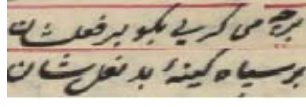 بر چه می گریی بگو بر فعلشان
بر سپاه کینهٔ بد نعلشان